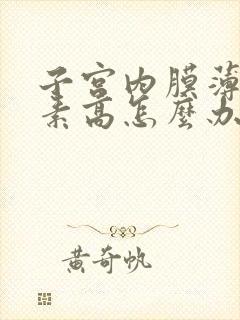 子宫内膜薄
素高怎麼办
黄奇帆